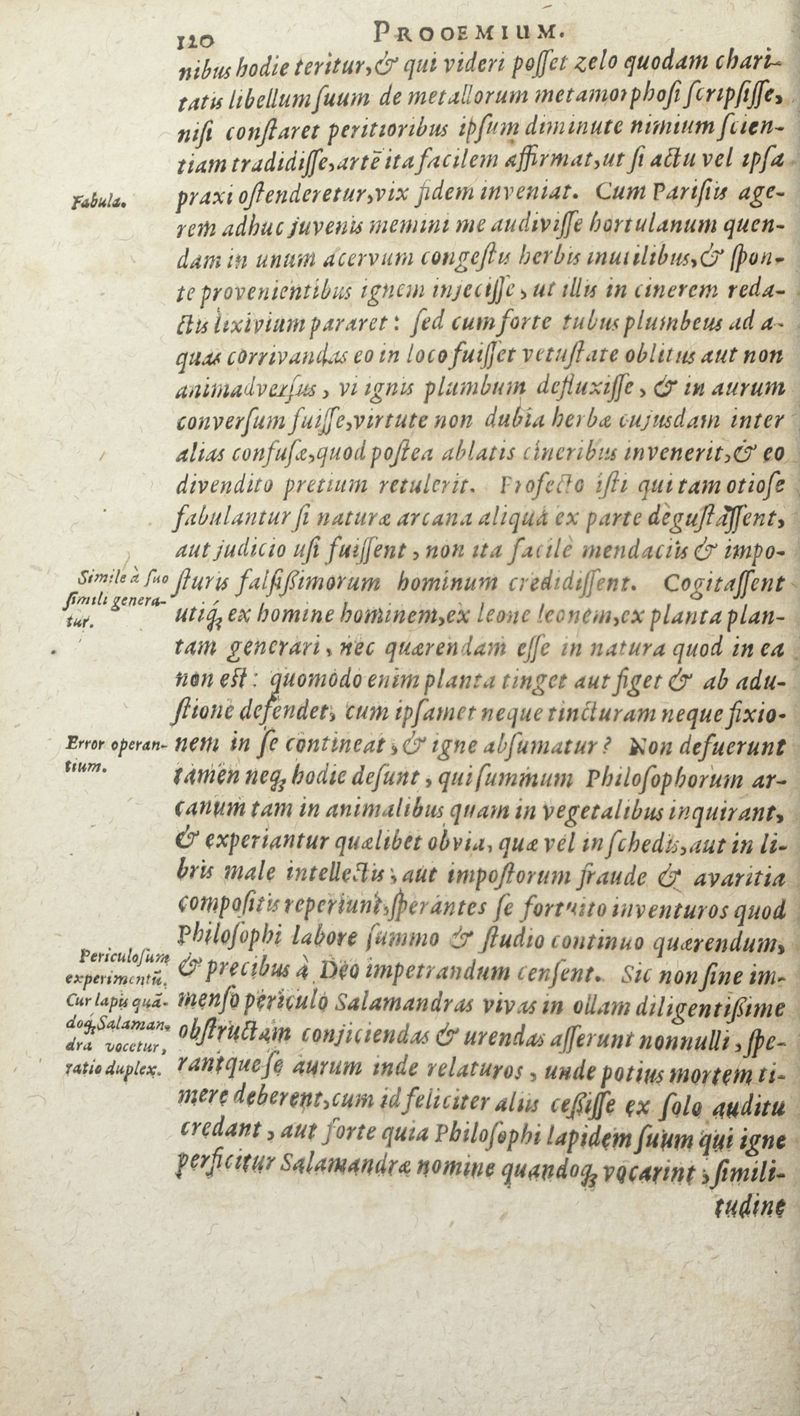 110 PROOEMIUM.
nibus hodie teritur, & qui videri posset zelo quodam chari-
tatis libellum suum de metallorum metamorphosi scripsisse,
nisi constaret peritioribus ipsum diminute nimium scien-
tiam tradidisse, artē ita facilem affirmat, ut si actu vel ipsa
Fabula.
praxi ostenderetur, vix fidem inveniat. Cum Parisiis age-
rem adhuc juvenis memini me audivisse hortulanum quen-
dam in unum acervum congestis herbis inutilibus, & spon-
te provenientibus ignem injecisse, ut illis in cinerem reda-
ctis lixivium pararet: sed cum forte tubus plumbeus ad a-
quas corrivandas eo in loco fuisset vetustate oblitus aut non
animadversus, vi ignis plumbum defluxisse, & in aurum
conversum fuisse, virtute non dubia herbæ cujusdam inter
alias confusæ, quod postea ablatis cineribus invenerit, & eo
divendito pretium retulerit. Profecto isti qui tam otiose
fabulantur si naturæ arcana aliqua ex parte degustassent,
aut judicio usi fuissent, non ita facile mendaciis & impo-
Simile à suo
simili genera-
tur.
sturis falsissimorum hominum credidissent. Cogitassent
utiq; ex homine hominem, ex leone leonem, ex planta plan-
tam generari, nec quærendam esse in natura quod in ea
non est: quomodo enim planta tinget aut figet & ab adu-
stione defendet, cum ipsamet neque tincturam neque fixio-
Error operan-
tium.
nem in se contineat, & igne absumatur? Non defuerunt
tamen neq; hodie desunt, qui summum Philosophorum ar-
canum tam in animalibus quam in vegetalibus inquirant,
& experiantur quælibet obvia, quæ vel in schedis, aut in li-
bris male intellectis, aut impostorum fraude & avaritia
compositis reperiunt, sperantes se fortuito inventuros quod
Philosophi labore summo & studio continuo quærendum,
Periculosum
experimentū.
& precibus à Deo impetrandum censent. Sic non sine im-
Cur lapis quā-
doq; Salaman-
dra vocetur,
ratio duplex.
menso periculo Salamandras vivas in ollam diligentissime
obstructam conjiciendas & urendas asserunt nonnulli, spe-
rantque se aurum inde relaturos, unde potius mortem ti-
mere deberent, cum id feliciter aliis cessisse ex solo auditu
credant, aut forte quia Philosophi lapidem suum qui igne
perficitur Salamandræ nomine quandoq; vocarint, simili-
tudine